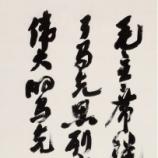 毛主席
了马克思列
伟大的马克